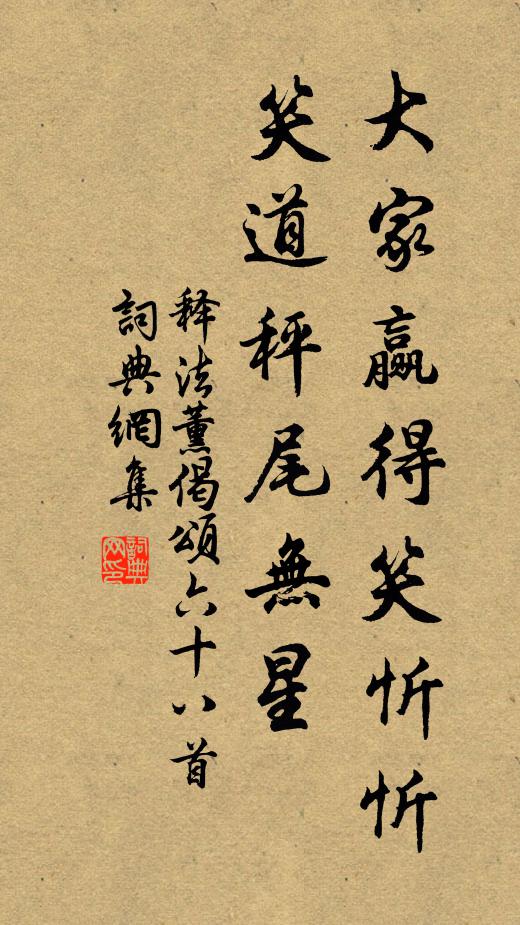 大家赢得笑忻忻
笑道秤尾無星
释法薰偈頌六十八首
詞典網集
詞典网印